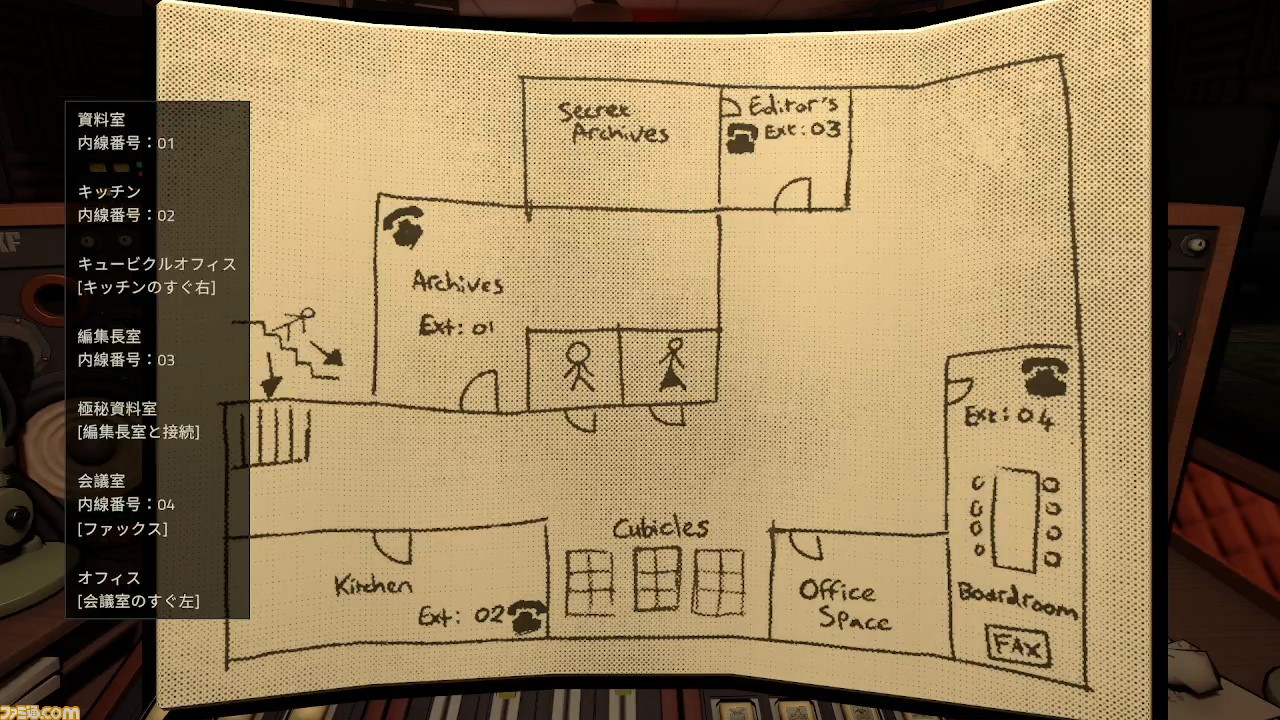 資料室
内線番号：01
キッチン
内線番号：02
キュービクルオフィス
[キッチンのすぐ右]
編集長室
内線番号：03
極秘資料室
[編集長室と接続]
会議室
内線番号：04
[ファックス]
オフィス
[会議室のすぐ左]
Secret
Archives
Editor's
Ext: 03
Archives
Ext: 01
Ext: 04
Cubicles
Kitchen
Ext: 02
Office
Space
Boardroom
FAX
ファミ通.com